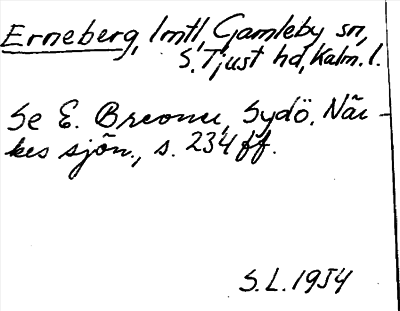 Erneberg, lmtl, Gamleby sn,
S. Tjust hd, Kalm. l.
Se E. Brevner, Sydö. När-
kes sjön., s. 234 ff.
S.L. 1954